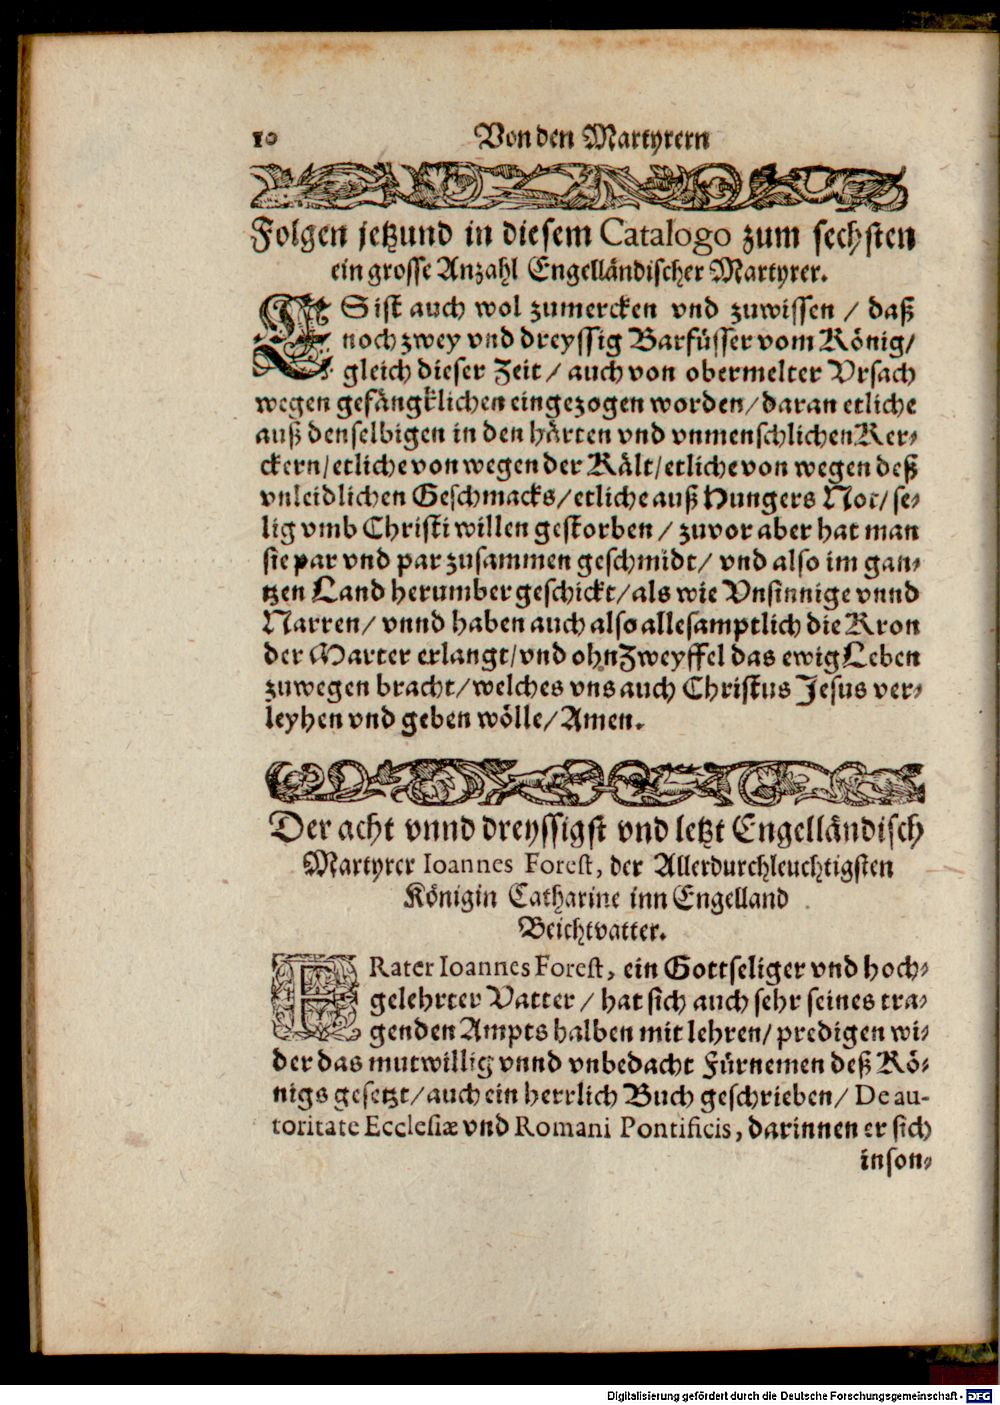 10 Von den Martyrern
Folgen jetzund in diesem Catalogo zum sechsten
ein grosse Anzahl Engelländischer Martyrer.
ES ist auch wol zumercken vnd zuwissen / daß
noch zwey vnd dreyssig Barfüsser vom König/
gleich dieser Zeit / auch von obermelter Vrsach
wegen gefängklichen eingezogen worden/daran etliche
auß denselbigen in den härten vnd vnmenschlichen Ker-
ckern/etliche von wegen der Kält/etliche von wegen deß
vnleidlichen Geschmacks/etliche auß Hungers Not/se-
lig vmb Christi willen gestorben / zuvor aber hat man
sie par vnd par zusammen geschmidt/ vnd also im gan-
tzen Land herumber geschickt/als wie Vnsinnige vnnd
Narren/ vnnd haben auch also allesamptlich die Kron
der Marter erlangt/vnd ohn Zweyffel das ewig Leben
zuwegen bracht/welches vns auch Christus Jesus ver-
leyhen vnd geben wölle/Amen.
Der acht vnnd dreyssigst vnd letzt Engelländisch
Martyrer Ioannes Forest, der Allerdurchleuchtigsten
Königin Catharine inn Engelland
Beichtvatter.
FRater Ioannes Forest, ein Gottseliger vnd hoch-
gelehrter Vatter / hat sich auch sehr seines tra-
genden Ampts halben mit lehren/predigen wi-
der das mutwillig vnnd vnbedacht Fürnemen deß Kö-
nigs gesetzt/auch ein herrlich Buch geschrieben/ De au-
toritate Ecclesiæ vnd Romani Pontificis, darinnen er sich
inson-
Digitalisierung gefördert durch die Deutsche Forschungsgemeinschaft - DFG